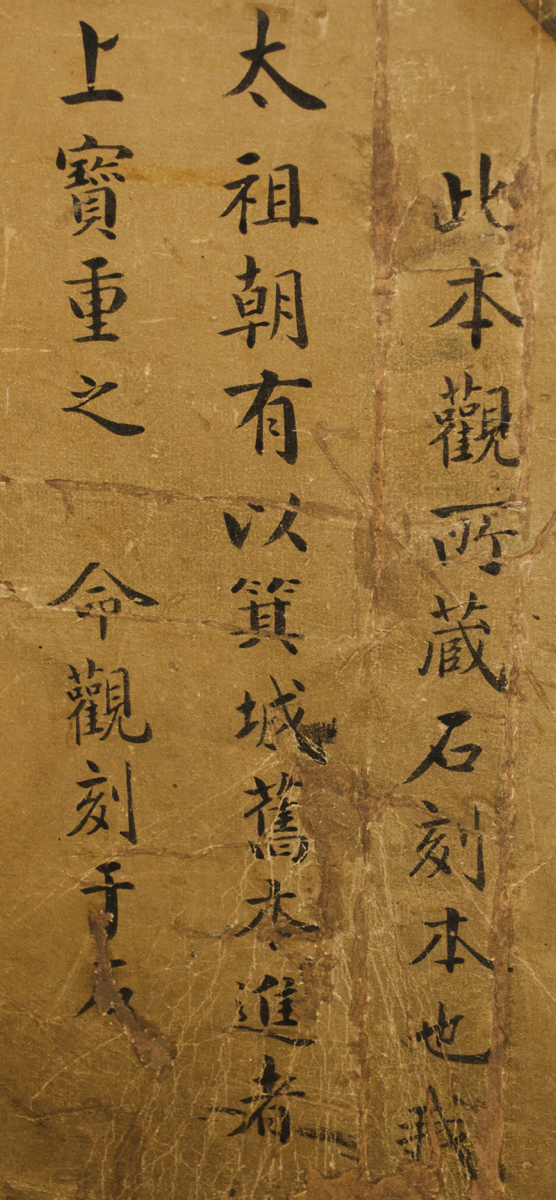 此本觀所蔵石刻本也我
太祖朝有以箕城舊本進者
上寶重之 命觀刻于石